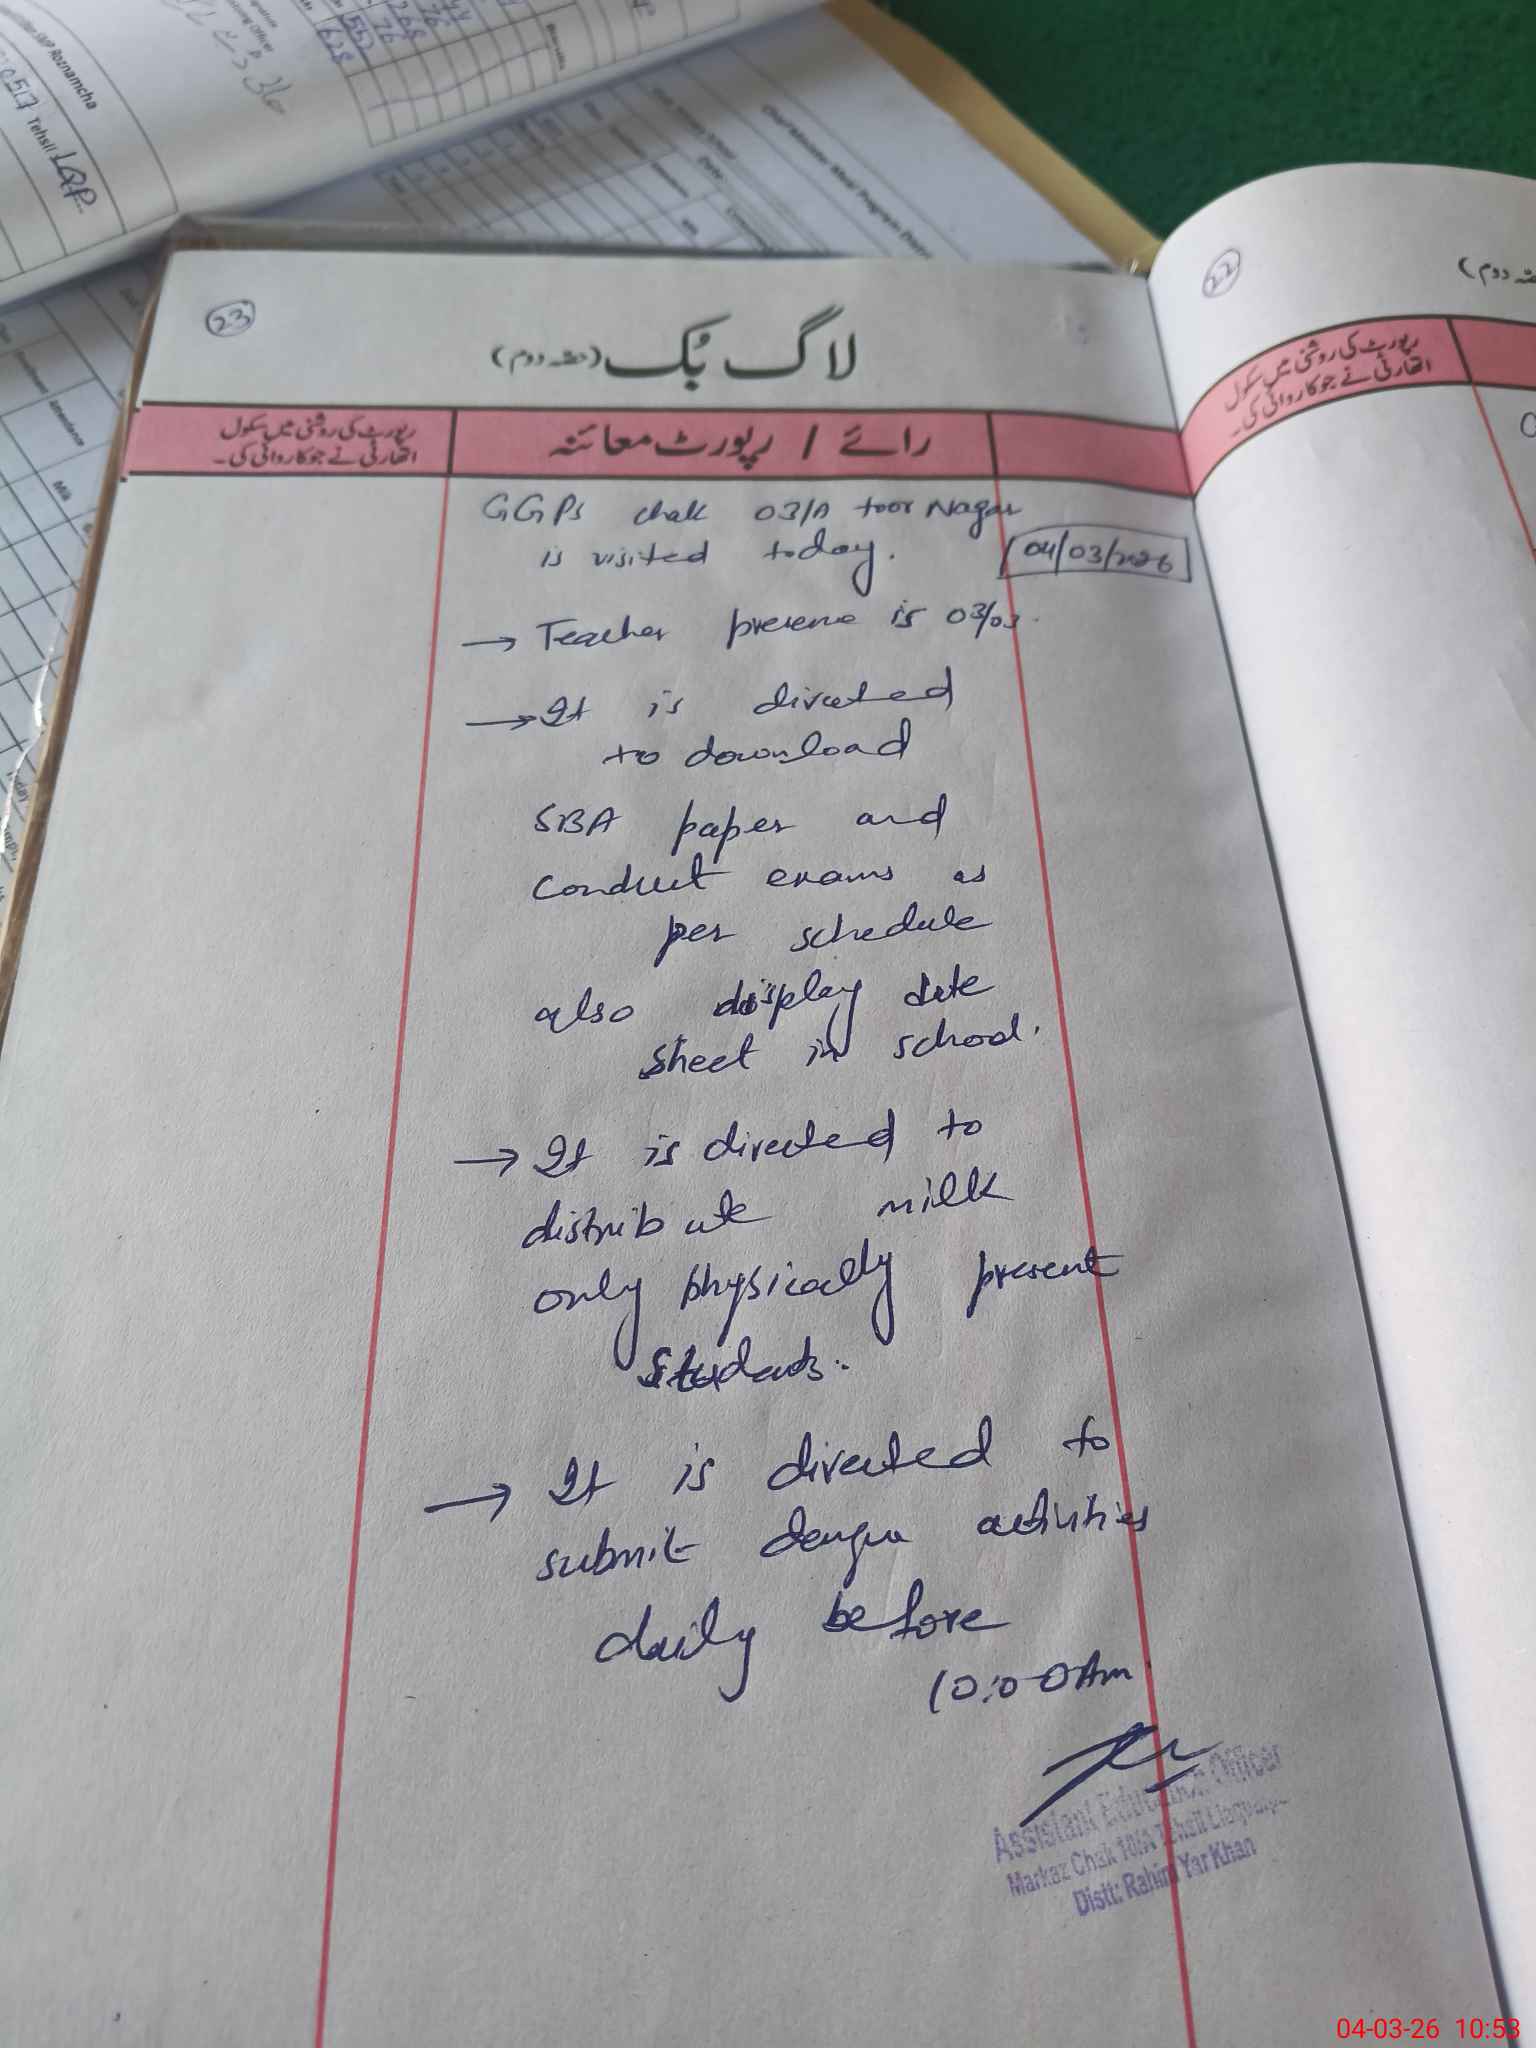 Roznamcha
0517 Tehsil LQP.
557
268
76
628
Chief Minister Meal Program
23
لاگ بُک (حصّہ دوم)
رپورٹ کی روشنی میں سکول
اتھارٹی نے جو کاروائی کی۔
رائے / رپورٹ معائنہ
GGPS chak 03/A toor Nagar
is visited today.
04/03/2026
→ Teacher presence is 03/03.
→ It is directed
to download
SBA paper and
conduct exams as
per schedule
also display date
sheet in school.
→ It is directed to
distribute milk
only physically present
students.
→ It is directed to
submit dengue activities
daily before
10:00 Am
Assistant Education Officer
Markaz Chak 10/A Tehsil Liaquatpur
Distt: Rahim Yar Khan
22
دوم)
رپورٹ کی روشنی میں سکول
اتھارٹی نے جو کاروائی کی۔
04-03-26 10:53